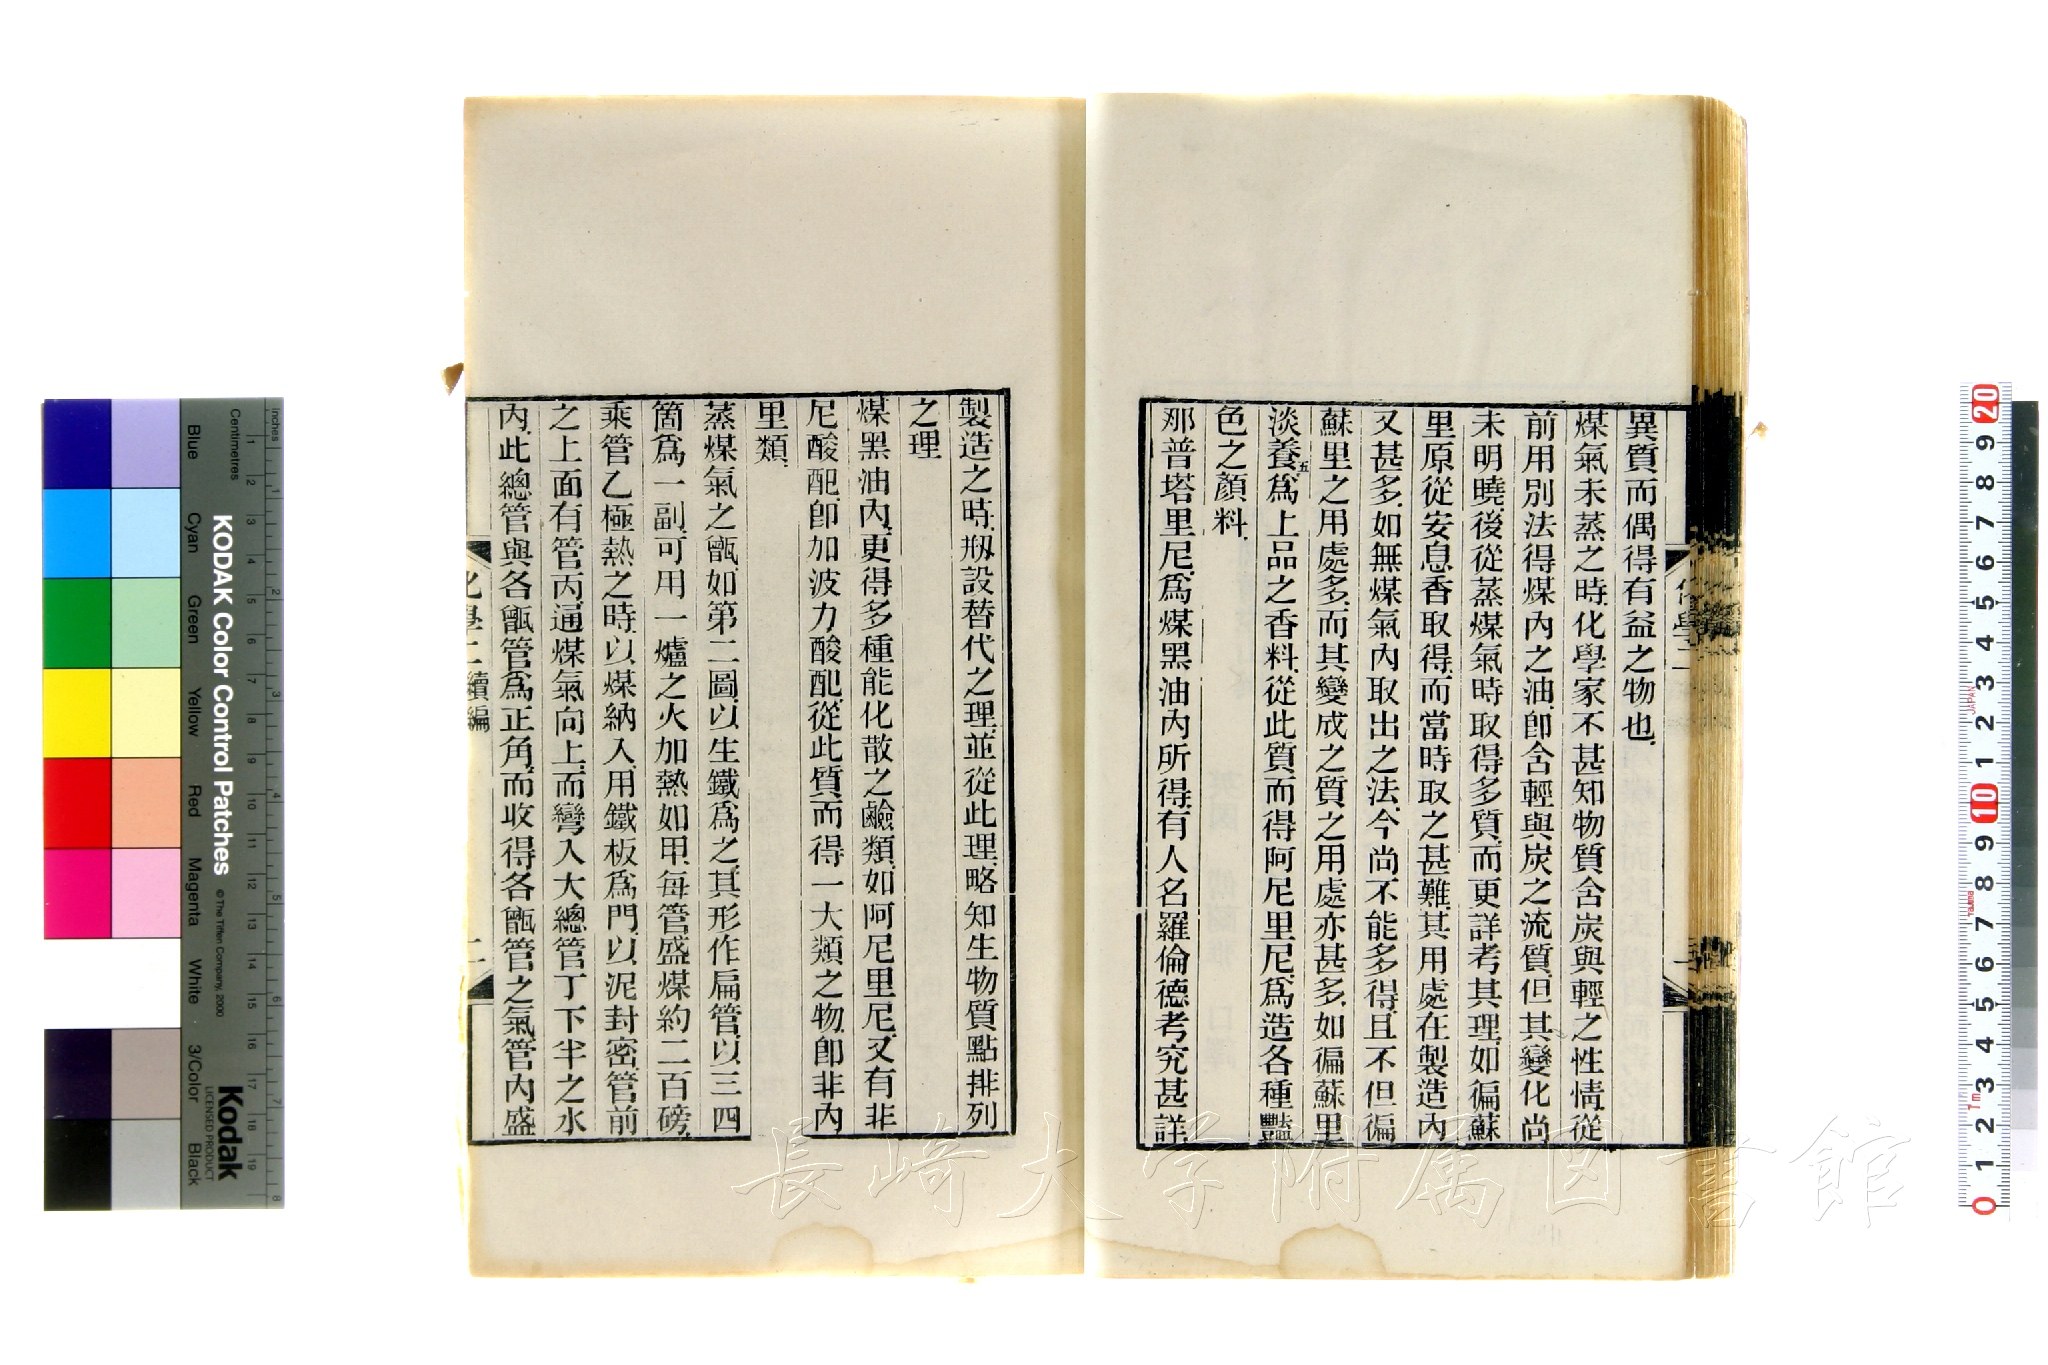 異質而偶得有益之物也
煤氣未蒸之時化學家不甚知物質含炭與輕之性情從
前用別法得煤內之油卽含輕與炭之流質但其變化尚
未明曉後從蒸煤氣時取得多質而更詳考其理如徧蘇
里原從安息香取得而當時取之甚難其用處在製造內
又甚多如無煤氣內取出之法今尚不能多得且不但徧
蘇里之用處多而其變成之質之用處亦甚多如徧蘇里
淡養五爲上品之香料從此質而得阿尼里尼爲造各種豔
色之顏料
那普塔里尼爲煤黑油內所得有人名羅倫德考究甚詳
製造之時剏設替代之理並從此理略知生物質點排列
之理
煤黑油內更得多種能化散之鹼類如阿尼里尼又有非
尼酸酏卽加波力酸酏從此質而得一大類之物卽非內
里類
蒸煤氣之甑如第二圖以生鐵爲之其形作扁管以三四
箇爲一副可用一爐之火加熱如甲每管盛煤約二百磅
乘管乙極熱之時以煤納入用鐵板爲門以泥封密管前
之上面有管丙通煤氣向上而彎入大總管丁下半之水
內此總管與各甑管爲正角而收得各甑管之氣管內盛
化學二續編
二
長崎大学附属図書館
KODAK Color Control Patches
©The Tiffen Company, 2000
Kodak
LICENSED PRODUCT
Inches
Centimetres
Blue
Cyan
Green
Yellow
Red
Magenta
White
3/Color
Black